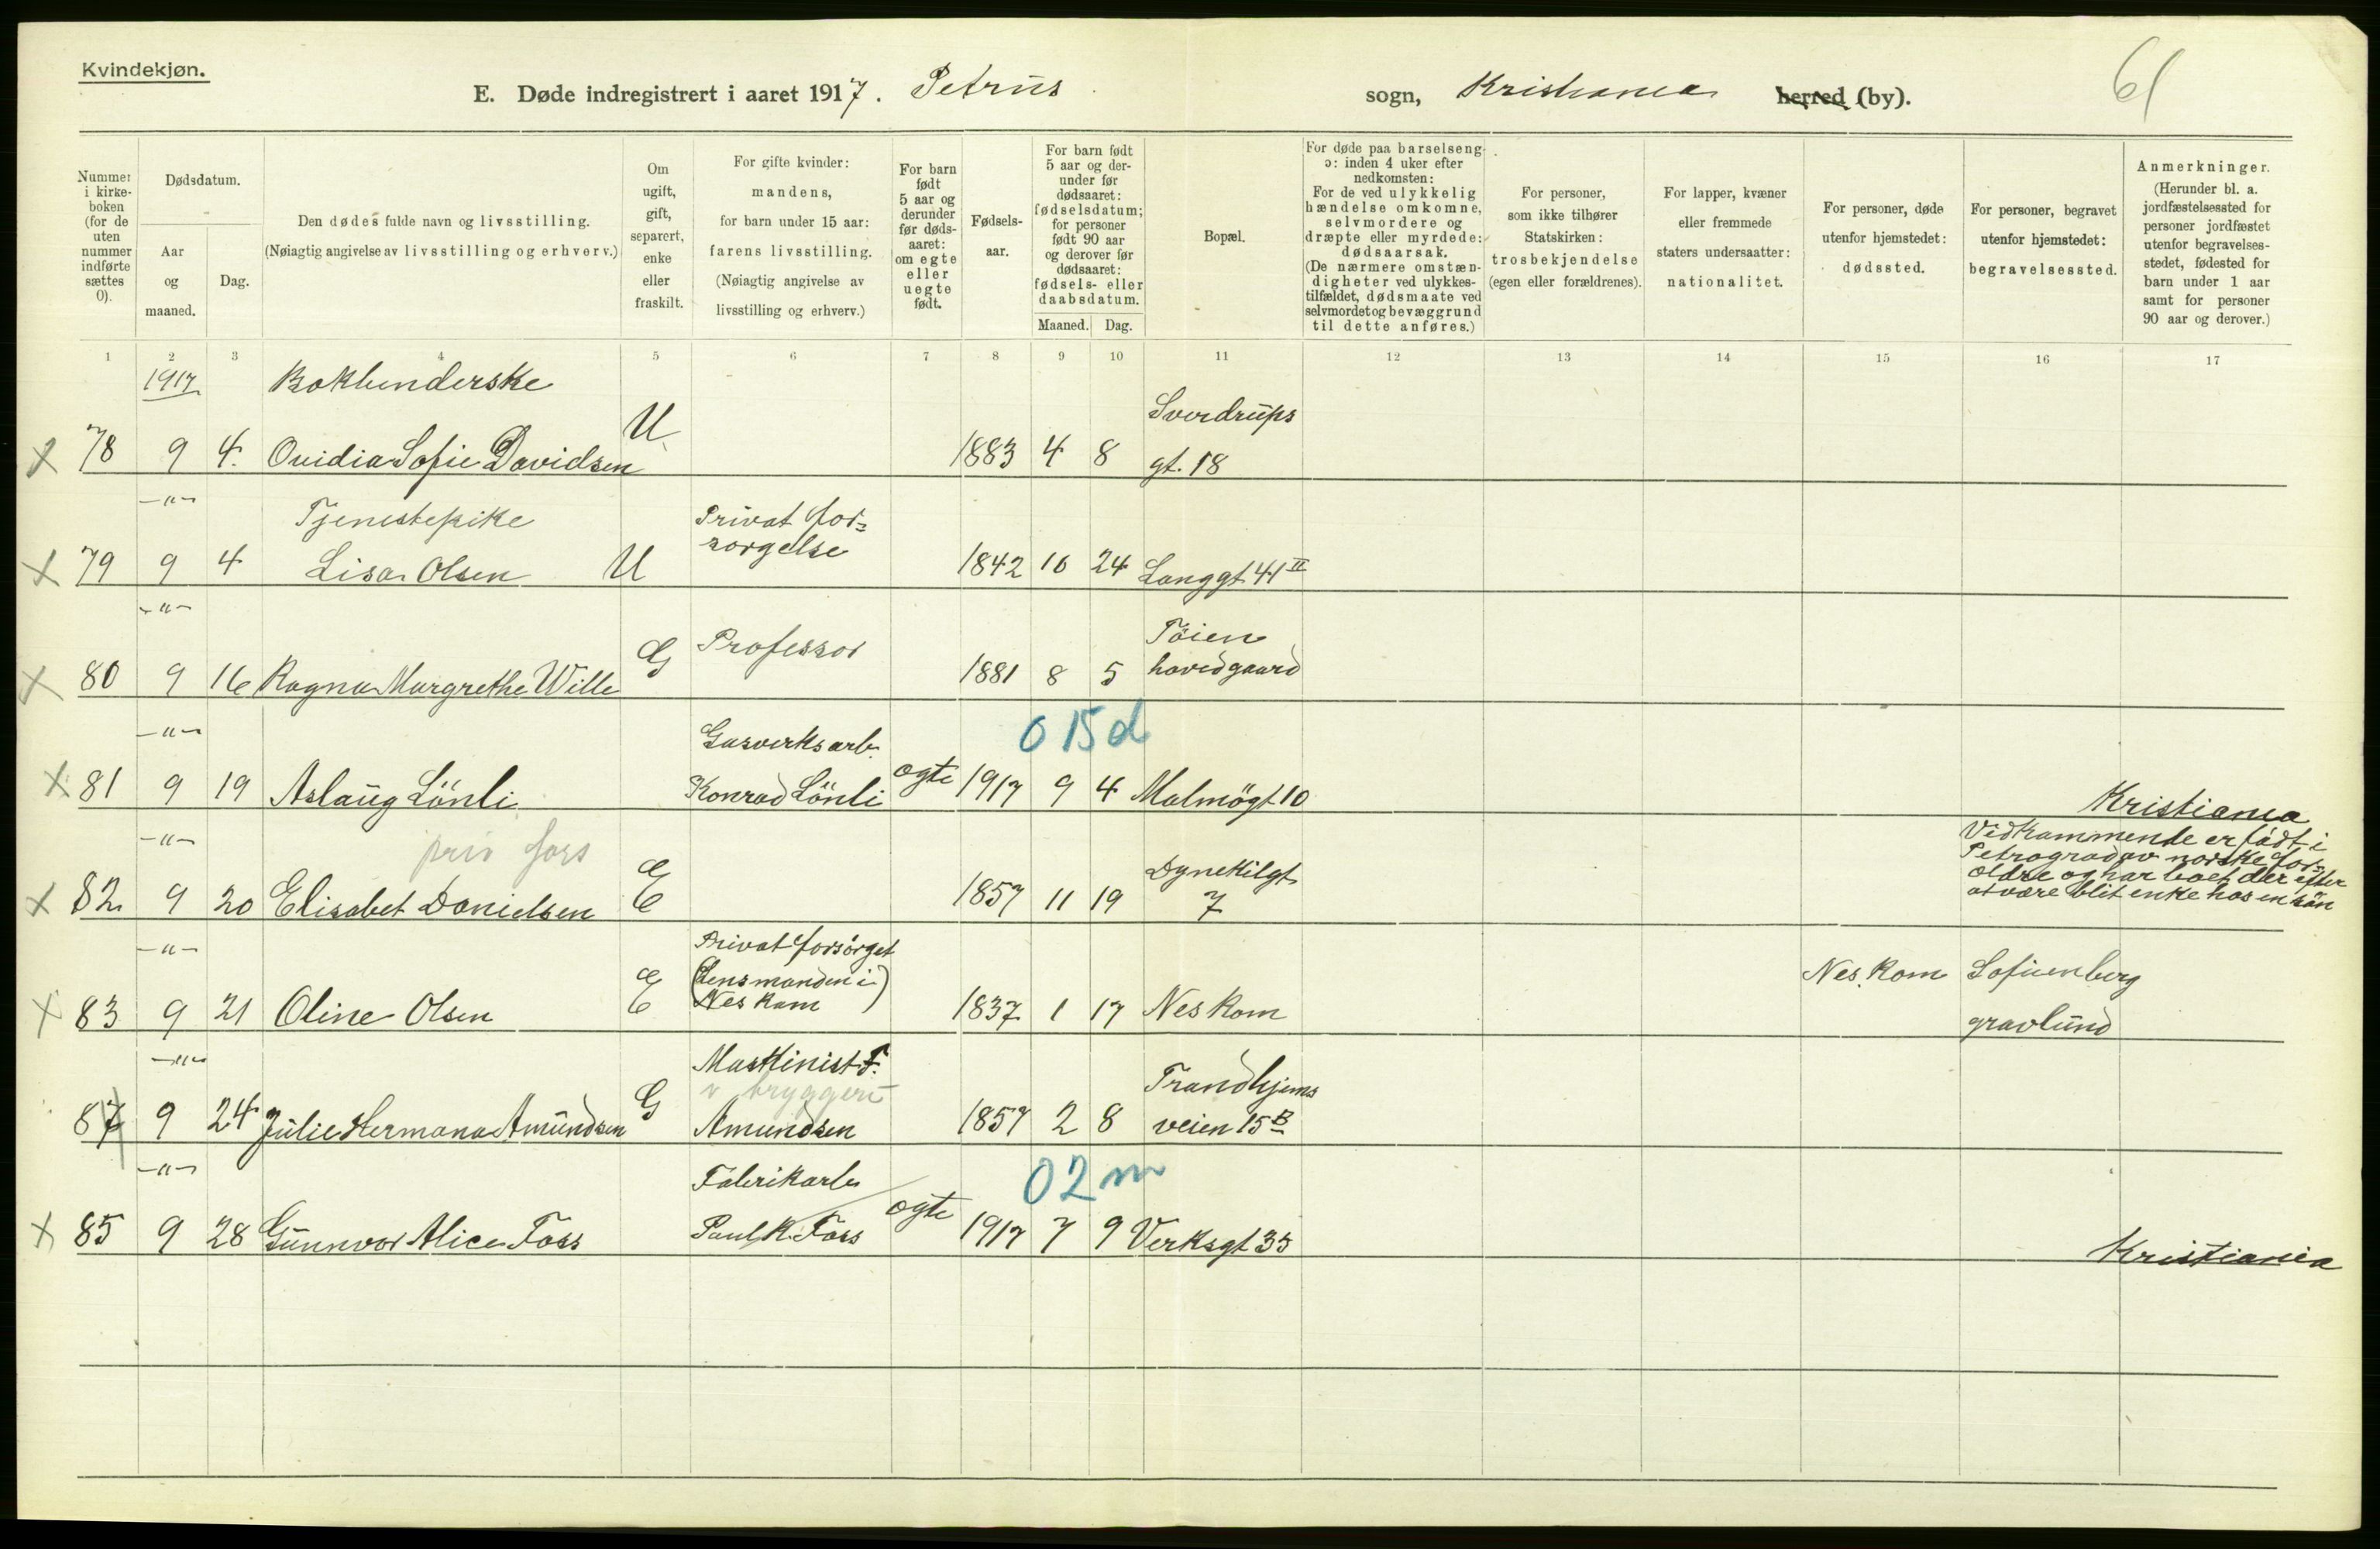 Kvindekjøn.
E. Døde indregistrert i aaret 1917. Petrus sogn, Kristiania herred (by).
61
Nummer i kirkeboken (for de uten nummer indførte sættes 0).
Dødsdatum.
Aar og maaned.
Dag.
Den dødes fulde navn og livsstilling.
(Nøiagtig angivelse av livsstilling og erhverv.)
Om ugift, gift, separert, enke eller fraskilt.
For gifte kvinder: mandens, for barn under 15 aar: farens livsstilling. (Nøiagtig angivelse av livsstilling og erhverv.)
For barn født 5 aar og derunder før dødsaaret: om egte eller uegte født.
Fødselsaar.
For barn født 5 aar og derunder før dødsaaret: fødselsdatum; for personer født 90 aar og derover før dødsaaret: fødsels- eller daabsdatum.
Maaned. Dag.
Bopæl.
For døde paa barselseng ɔ: inden 4 uker efter nedkomsten: For de ved ulykkelig hændelse omkomne, selvmordere og dræpte eller myrdede: dødsaarsak. (De nærmere omstændigheter ved ulykkestilfældet, dødsmaate ved selvmordet og bevæggrund til dette anføres.)
For personer, som ikke tilhører Statskirken: trosbekjendelse (egen eller forældrenes).
For lapper, kvæner eller fremmede staters undersaatter: nationalitet.
For personer, døde utenfor hjemstedet: dødssted.
For personer, begravet utenfor hjemstedet: begravelsessted.
Anmerkninger. (Herunder bl. a. jordfæstelsessted for personer jordfæstet utenfor begravelsesstedet, fødested for barn under 1 aar samt for personer 90 aar og derover.)
1 2 3 4 5 6 7 8 9 10 11 12 13 14 15 16 17
1917 Bokbinderske
Sverdrups
x 78 9 4. Ovidia Sofie Davidsen U 1883 4 8 gt. 18
-"- Tjenestepike Privat for=
sorgelse
x 79 9 4 Lisa Olsen U 1842 10 24 Langgt 41 II
-"- Professor Töien
x 80 9 16 Ragna Margrethe Wille G 1881 8 5 hovedgaard
-"- Gasverksarb. 0 15 d
x 81 9 19 Aslaug Lönli Konrad Lönli egte 1917 9 4 Malmögt 10 Kristiania
-"- priv fors Dynekilgt
x 82 9 20 Elisabet Danielsen E 1857 11 19 7
Vedkommende er födt i
Petrograd av norske for=
eldre og har boet der efter
at være blit enke hos en sön
-"- Privat forsörget
(Lensmanden i
Nes kom)
x 83 9 21 Oline Olsen E 1837 1 17 Nes kom Nes. kom Sofienberg
gravlund
-"- Maskinist F.
v bryggeri Trondhjems
84 9 24 Julie Hermana Amundsen G Amundsen 1857 2 8 veien 15 B
-"- Fabrikarb 0 2 m
x 85 9 28 Gunnvor Alice Foss Paul K. Foss egte 1917 7 9 Verksgt 33 Kristiania